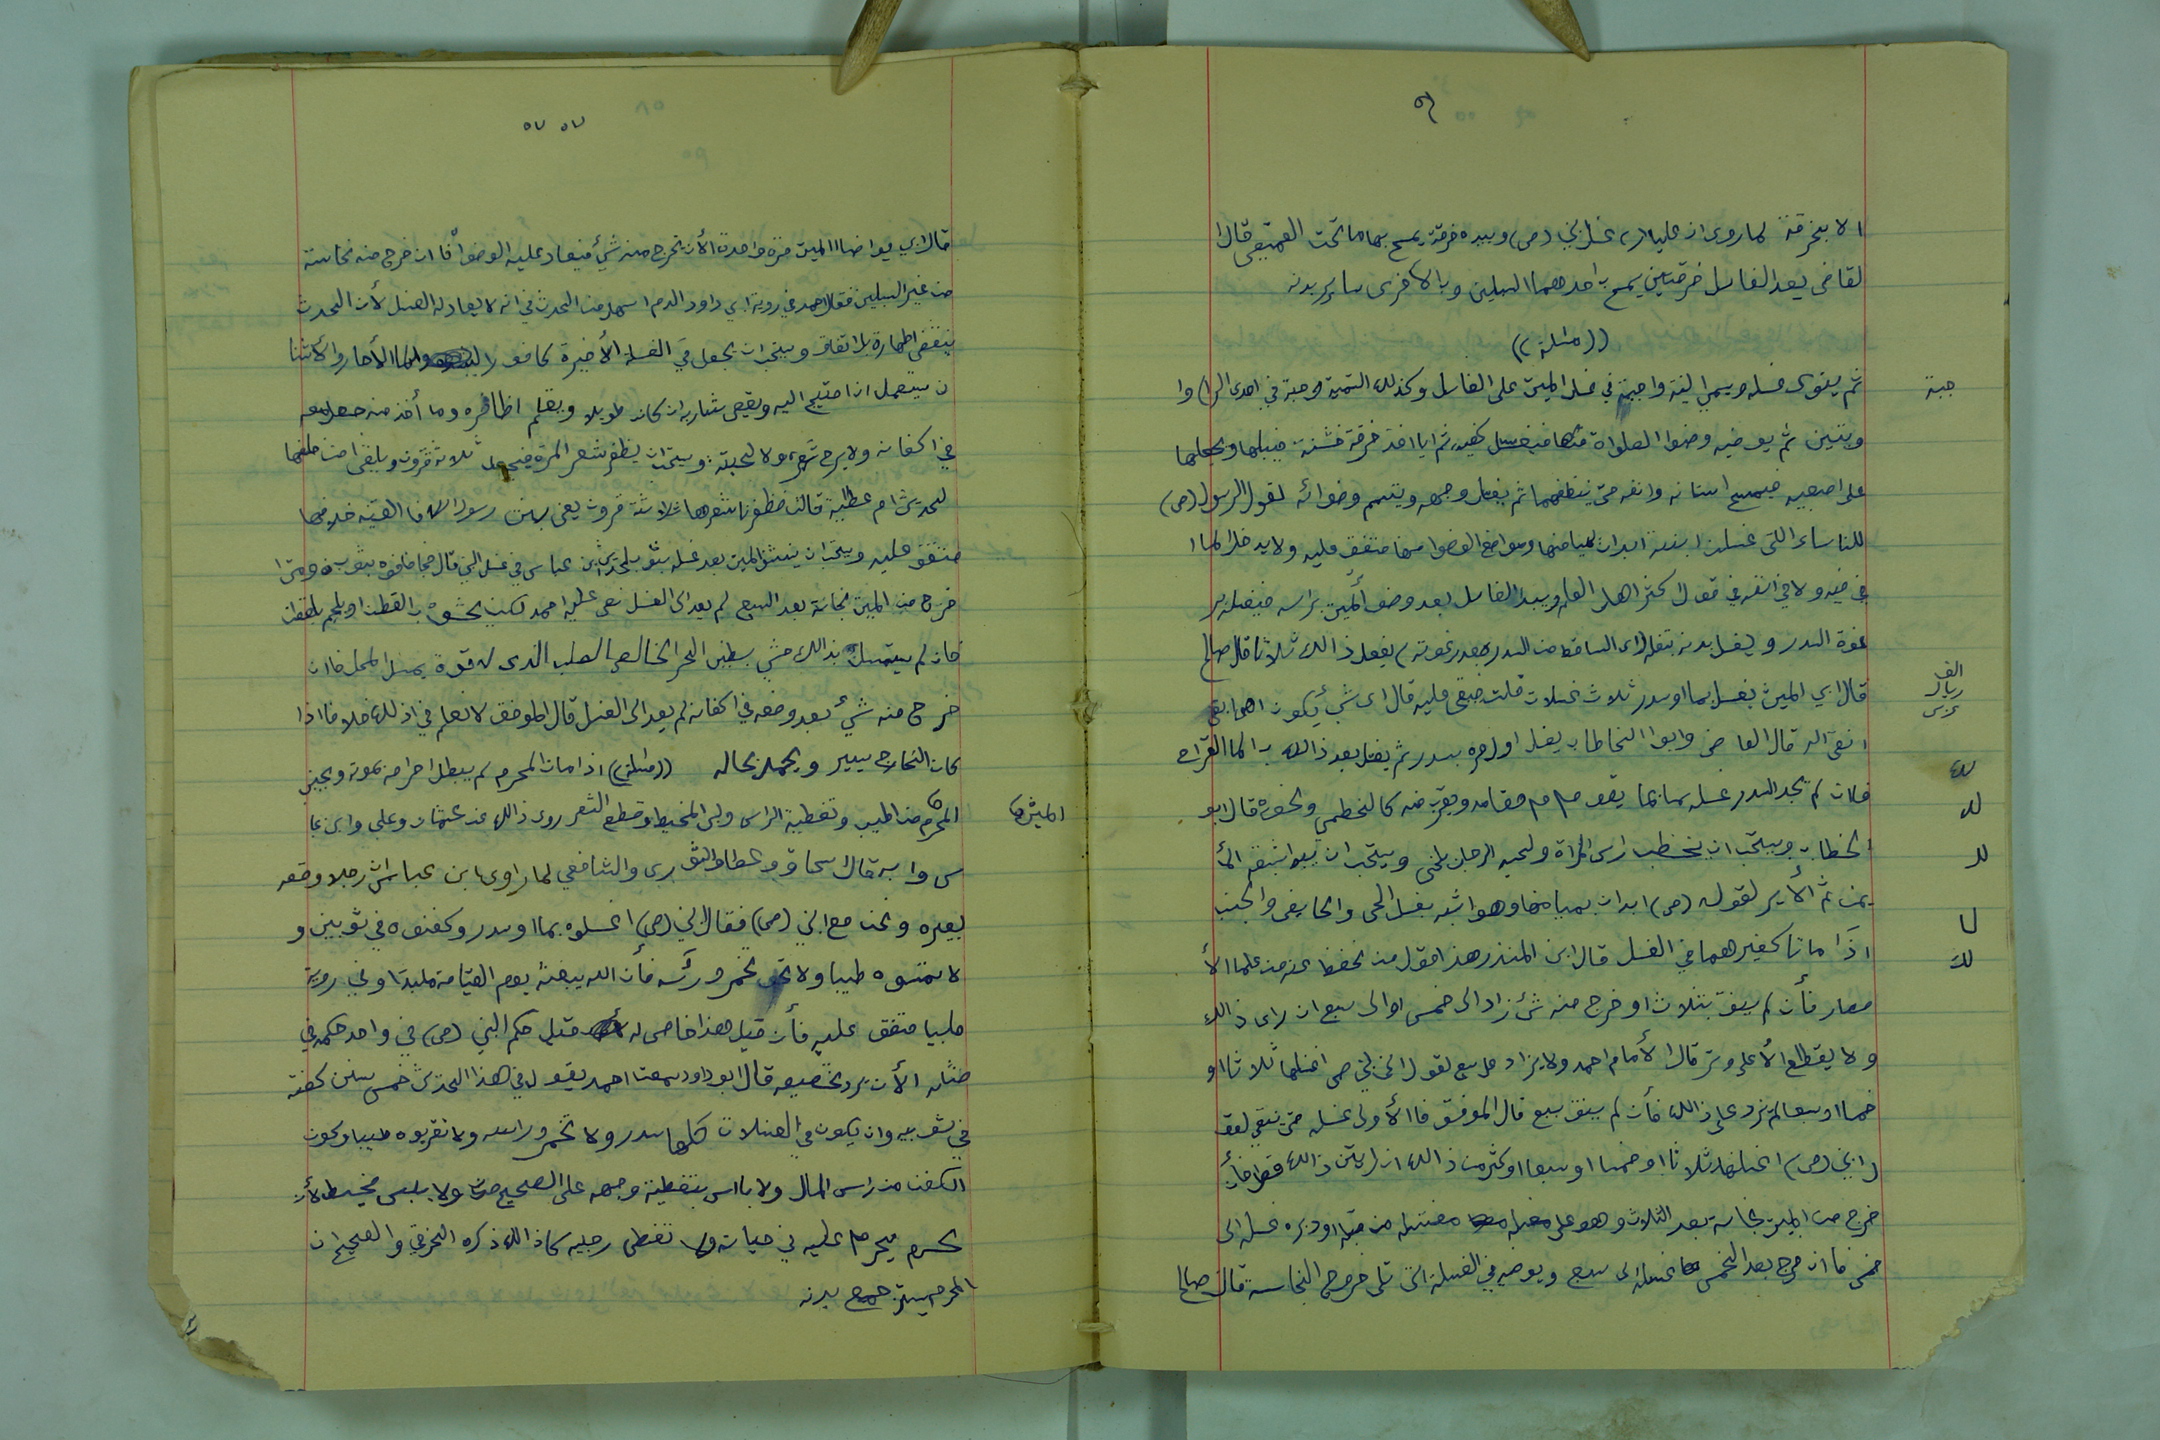 ٥٦
الا بخرقة لما روى ان عليا (ر) غسل النبي (ص) وبيده خرقة يمسح بها ما تحت القميص قال ا
لقاضي يعد الغاسل خرقتين يمسح باحدهما السبلين وبالاخرى ساير بدنه
((مسئلة))
ثم ينوى غسله ويسمي النية واجبة في غسل الميت على الغاسل وكذلك التسمية وجبة في احدى الر وا
جبة
ويتين ثم يوضيه وضوا الصلواة كفيه ثم ايا اخذ خرقة خشنة فيبلها ويجعلها
على اصبعيه فيمسح اسنانه وانفه حتى ينظفهما ثم يغسل وجهه ويتمم وضوائه لقول الرسول (ص)
للناساء اللتى غسلن ابنته ابدان بميامنها ومواضع الوضوا منها متفق عليه ولا يدخل الما ا
في فيه ولا في انفه في قول اكثر اهل العلم ويبدا الغاسل بعد وضوأ الميت براسه فيغسله بر
غوة السدر ويغسل بدنه بتفله (اى الساقط من السدر بعد رغوته) يفعل ذالك ثلاثا قال صالح
قال ابي الميت يغسل بما اوسدر ثلاث غسلات قلت فيبقى عليه قال اى شئ يكون اهو ابقى
الف ريال عربى
انقى اله قال القاضي وابوا الخطاب يغسل اول مرة بسدر ثم يغسل بعد ذالك بالما القراح
فلان لم تجد السدر غسله بما يقوم مقامه ويقرب منه كالخطمي ونحوه قال ابو
الخطاب ويستحب ان يخضب راس المراة ولحيه الرجل بالحنى ويستحب ان يبدا بشقه الأ
يمن ثم الأيسر لقوله (ص) ابدان بميامنها وهو اشبه بغسل الحى والحايض والجنب
اذا ماتا كغيرهما في الغسل قال ابن المنذر هذا قول من نحفظ عنه من علما الأ
مصار فأن لم ينق بثلاث او خرج منه شئ زاد الى خمس او الى سبع ان راى ذالك
ولا يقطع الأعلى وتر قال الأمام احمد ولا يزاد على سبع لقول النبي ص اغسلها ثلاثا او
خمسا او سبعا لم يزد على ذالك فأن لم ينق بسبع قال الموفق فاالأولى غسله حتى ينقى لقو
ل النبي (ص) اغسلنها ثلاثا او خمسا او سبعا او اكثر من ذالك ان رايتن ذالك فأن
خرج من الميت نجاسة بعد الثلاث وهو على مغتسله من قبله او دبره غسله الى
خمس فاان خرج بعد الخمس غسله الى سبع ويوضيه في الغسلة التى تلى خروج النجاسة قال صالح
٥٧ ٥٧
قال ابي يوا ضاا الميت مرة واحدة الأان يخرج منه شئ فيعاد عليه الوضوأ فاان خرج منه نجاسة
من غير السبلين فقال احمد في روية ابي داود الدم اسهل من الحدث في انه لا يعاد له الغسل لأن الحدث
ينقض الطهارة بلا اتفاق ويستحب ان يجعل في الغسلة الأخيرة كافورا واما الأحار والاشنا
ن يستعمل ان احتيج اليه ويقص شاربه ان كان طويلا ويقلم اظافره وما أخذ منه جعل معه
في اكفانه ولا يسرح شعره ولا لحيته ويستحب ان يظفر شعر المرة فيجعل ثلاثة قرون ويلقى من خلفها
لحديث ام عطية قالت فظفرنا شعرها ثلاثة قرون يعني بنت رسول الله فا القيه خلافها
متفق عليه ويستحب ان ينشف الميت بعد غسله بثوب لحديث ابن عباس في غسل النبي قال فجاففوه بثوب ومتى ا
خرج من الميت نجاسة بعد السبع لم يعد الى الغسل نص عليه احمد لكن يحشوه بالقطن او يلجم بالقطن
فان لم يستمسك بذالك حشي بطين الحر الخالص الصلب الذى له قوة يمسك المحل فاان
خرج منه شئ بعد وضعه في اكفانه لم يعد الى الغسل قال الموفق لا نعلم في اذلك خلافا اذا
كان الخارج يسير ويحمل بحاله ((مسئلة)) اذا مات المحرم لم يبطل احرامه بموته ويجنب
المحرم من الطيب وتغطية الراس ولبس المخيط وقطع الشعر روى ذالك عن عثمان وعلي وابن عبا
س وا به قال اسحاق وعطا والثورى والشافعي لما راوى ابن عباس ان رجلا وقصه
بعيره ونحن مع النبي (ص) فقال النبي (ص) اغسلوه بما اوسدر وكفنوه في ثوبين و
لا تمسوه طيبا ولا تخمرو رأسه فأن الله يبعثه يوم القيامة ملبدا وفي روية
ملبيا متفق عليه فأن قيل هذا خاص له قيل حكم النبي (ص) في واحد حكمه في
مثله الأان يرد تخصيصه قال ابو داود سمعت احمد يقول في هذا الحديث خمس سنن كفنه
في ثوبيه وان يكون في الغسلات كلها سدر ولا تخمرو راسه ولا تقربوه طيبا وكون
الكفن من راس المال ولا باس بتغطية وجهه على الصحيح ولا يلبس مخيط لأن
يحرم عليه في حياته ولا تغطى رجليه كما ذالك ذكره الخرقي والصحيح ان
المحرم يستر جميع بدنه